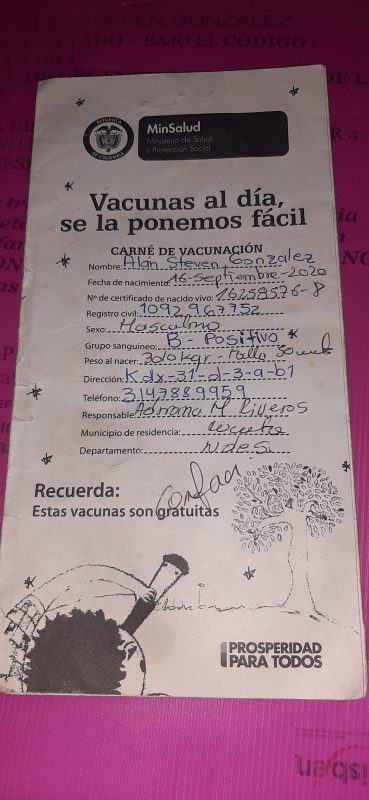 STEVEN GONZALEZ
BAJO EL CÓDIGO :
REPUBLICA
DE COLOMBIA
MinSalud
Ministerio de Salud
y Protección Social
Vacunas al día,
se la ponemos fácil
CARNÉ DE VACUNACIÓN
Nombre: Alan Steven Gonzalez
Fecha de nacimiento: 16-Septiembre-2020
Nº de certificado de nacido vivo: 16258576-8
Registro civil: 1092967752
Sexo: Masculino
Grupo sanguíneo: B- Positivo
Peso al nacer:
Dirección: Kdx-31-d-3-a-b1
Teléfono: 3147889959
Responsable: Adriana M. Riveros
Municipio de residencia: Cucuta
Departamento: N de S
Recuerda:
Estas vacunas son gratuitas
PROSPERIDAD
PARA TODOS